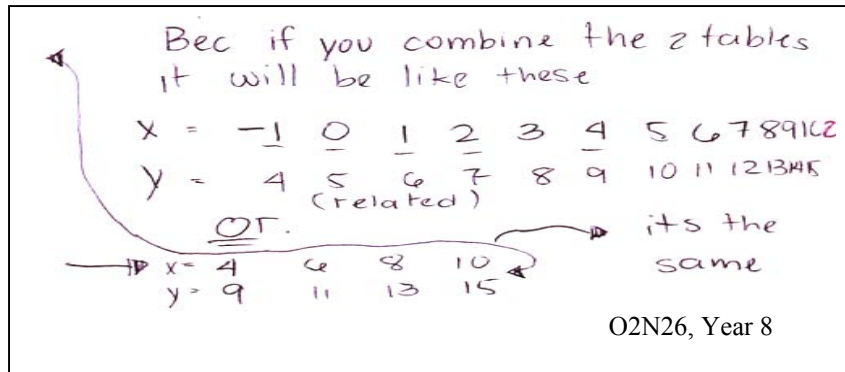 Bec if you combine the 2 tables
it will be like these
x = -1 0 1 2 3 4 5 6 7 8 9 10
y = 4 5 6 7 8 9 10 11 12 13 14 15
(related)
or.
its the
same
x = 4 6 8 10
y = 9 11 13 15
O2N26, Year 8